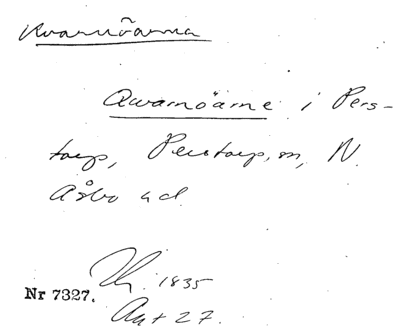 Kvarnöarna
Qwarnöarne i Pers-
torp, Perstorp, sn, N.
Åsbo hd.
1835
Nr 7327.
Akt 27.